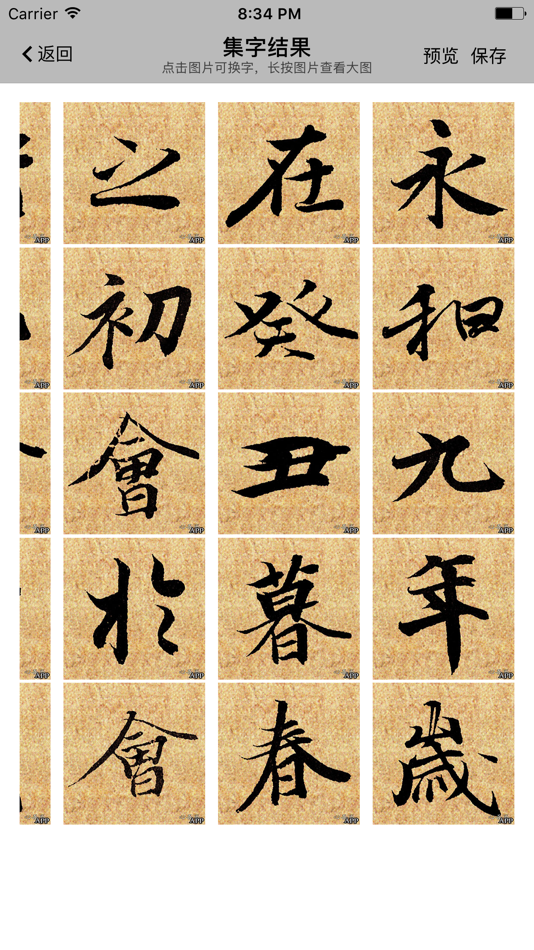 Carrier 8:34 PM
返回
集字结果
点击图片可换字，长按图片查看大图
预览 保存
永和九年歲
在癸丑暮春
之初會於會
APP APP APP APP
APP APP APP APP
APP APP APP APP
APP APP APP APP
APP APP APP APP